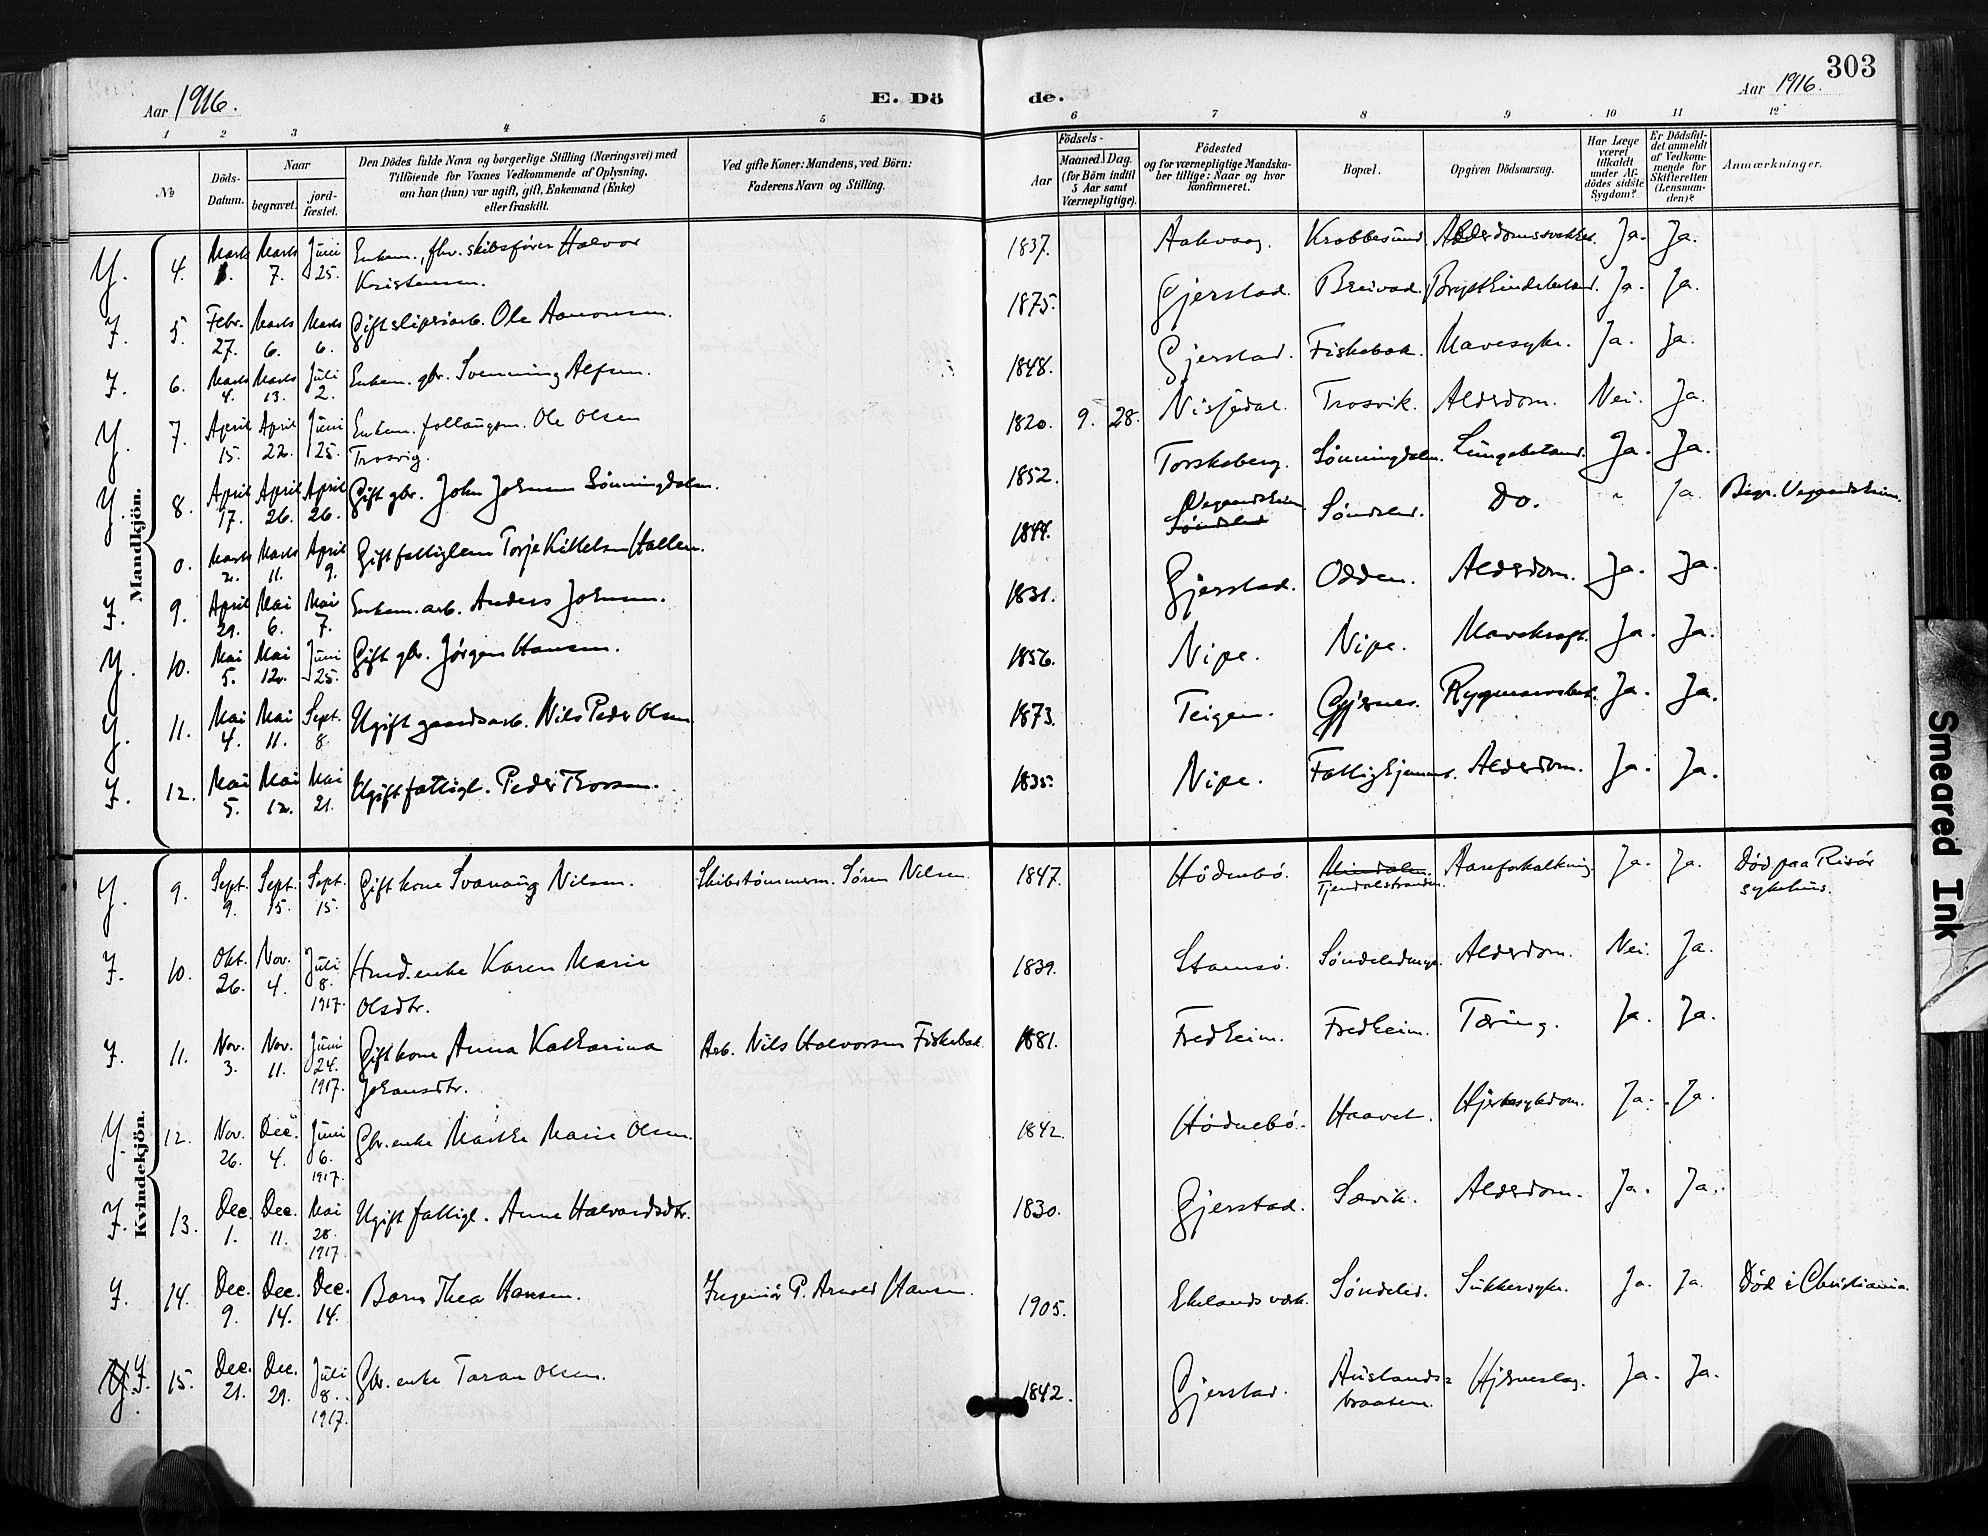 303
Aar 1916.
E. Döde.
Aar 1916.
1 2 3 4 5 6 7 8 9 10 11 12
№
Döds-Datum.
Naar
begravet.
jord-fæstet.
Den Dödes fulde Navn og borgerlige Stilling (Næringsvei) med
Tilföiende for Voxnes Vedkommende af Oplysning,
om han (hun) var ugift, gift, Enkemand (Enke)
eller fraskilt.
Ved gifte Koner: Mandens, ved Börn:
Faderens Navn og Stilling.
Födsels-
Aar
Maaned. Dag.
(for Börn indtil
5 Aar samt
Værnepligtige).
Födested
og for værnepligtige Mandska-
ber tillige: Naar og hvor
konfirmeret.
Bopæl.
Opgiven Dödsaarsag.
Har Læge
været
tilkaldt
under Af-
dödes sidste
Sygdom?
Er Dödsfal-
det anmeldt
af Vedkom-
mende for
Skifteretten
(Lensman-
den)?
Anmærkninger.
Mandkjön.
Y. 4. Marts Marts 7. Juni 25. Enkem., fhv. skibsfører Halvor Kristensen. 1837. Aakvaag. Krabbesund. Ja. Ja.
F. 5. Febr. 27. Marts 6. Marts 6. Gift sliperiarb. Ole Aanonsen. 1875. Gjerstad. Ja. Ja.
F. 6. Marts 4. Marts 13. Juli 2. Enkem. gbr. Svenning Alfsen. 1848. Gjerstad. Fiskebæk. Mavesyke. Ja. Ja.
Y. 7. April 15. April 22. Juni 25. Enkem. Ole Olsen Trosvig. 1820. 9. 28. Nisjedal. Trosvik. Alderdom. Nei. Ja.
Y. 8. April 17. April 26. April 26. Gift gbr. John Johnsen Lønningdalen. 1852. Torskeberg. Lønningdalen. Ja. Ja.
0. Marts 2. Marts 11. April 9. Gift fattiglem Torje Kittelsen Hallen. 1844. Vegaardsheim Søndeled Søndeled. Do. " Ja. Begr. Vegaardsheim.
F. 9. April 29. Mai 6. Mai 7. Enkem. arb. Anders Johnsen. 1831. Gjerstad. Odden. Alderdom. Ja. Ja.
Y. 10. Mai 5. Mai 12. Juni 25. Gift gbr. Jørgen Hansen. 1856. Nipe. Nipe. Mavekræft. Ja. Ja.
Y. 11. Mai 4. Mai 11. Sept. 8. Ugift gaardsarb. Nils Peder Olsen 1873. Teigen. Gjernes. Ja. Ja.
F. 12. Mai 5. Mai 12. Mai 21. Ugift fattigl. Peder Thorsen. 1835. Nipe. Fattighjemmet. Alderdom. Ja. Ja.
Kvindekjön.
Y. 9. Sept. 9. Sept. 15. Sept. 15. Gift kone Svanaug Nilsen. Skibstømmerm. Søren Nilsen. 1847. Hødnebø. Tjendalstranden. Aareforkalkning Ja. Ja. Død paa Risør sykehus.
F. 10. Okt. 26. Nov. 4. Juli 8. 1917. Husm.enke Karen Marie Olsdtr. 1839. Stamsø. Alderdom. Nei. Ja.
F. 11. Nov. 3. Nov. 11. Juni 24. 1917. Gift kone Anna Katharina Johansdtr. Arb. Nils Halvorsen Fiskebæk. 1881. Fredheim. Fredheim. Tæring. Ja. Ja.
Y. 12. Nov. 26. Dec. 4. Juni 6. 1917. Gbr. enke Marthe Marie Olsen. 1842. Hødnebø. Haavet. Hjertesykdom. Ja. Ja.
F. 13. Dec. 1. Dec. 11. Mai 28. 1917 Ugift fattigl. Anne Halvardsdtr. 1830. Gjerstad. Sævik. Alderdom. Ja. Ja.
F. 14. Dec. 9. Dec. 14. Dec. 14. Barn Thea Hansen. Ingeniør P. Arnold Hansen. 1905. Egelands værk. Søndeled. Sukkersyke. Ja. Ja. Død i Christiania.
F. 15. Dec. 21. Dec. 29. Juli 8. 1917. Gbr. enke Taran Olsen. 1842. Gjerstad. Auslands-braaten. Hjerneslag. Ja. Ja.
Smeared Ink